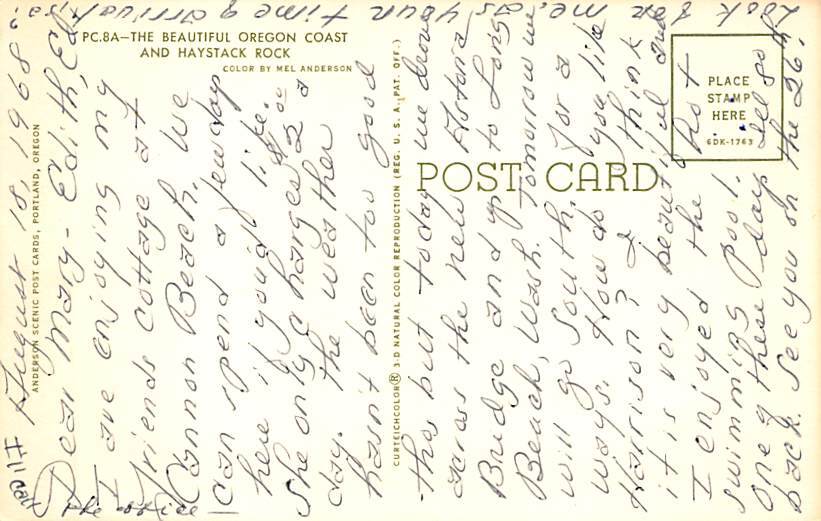 PC.8A—THE BEAUTIFUL OREGON COAST
AND HAYSTACK ROCK
COLOR BY MEL ANDERSON
ANDERSON SCENIC POST CARDS, PORTLAND, OREGON
CURTEICHCOLOR® 3-D NATURAL COLOR REPRODUCTION (REG. U. S. A. PAT. OFF.)
POST CARD
PLACE
STAMP
HERE
6DK-1763
August 18, 1968
Dear Mary - Edith, Ed
I are enjoying my
friends cottage at
Cannon Beach. We
can spend a few days
here if you'd like.
She only charges $2.00 a
day. The weather
hasn't been too good
tho but today we drove
across the new Astoria
Bridge and up to Long
Beach, Wash. Tomorrow we
will go South. For a
ways. How do you like
Harrison? I think
it is very beautiful and
I enjoyed the hot
swimming pool.
One of these days I'll go
back. See you on the 26th.
Look for me, as your time of arrival is?
the office